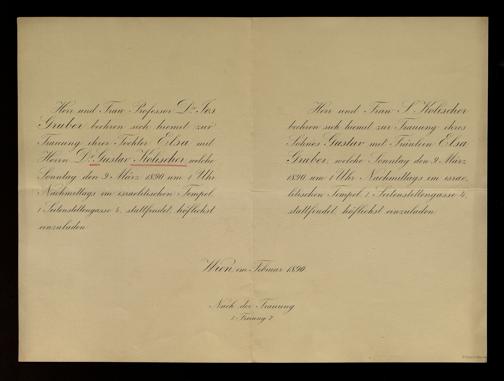 Herr und Frau Professor Dr. Jos.
Gruber beehren sich hiemit zur
Trauung ihrer Tochter Elsa mit
Herrn Dr. Gustav Kolischer, welche
Sonntag den 9 März 1890 um 1 Uhr
Nachmittags im israelitischen Tempel,
I Seitenstettengasse 4, stattfindet, höflichst
einzuladen.
Herr und Frau S. Kolischer
beehren sich hiemit zur Trauung ihres
Sohnes Gustav mit Fräulein Elsa
Gruber, welche Sonntag den 9. März
1890 um 1 Uhr Nachmittags im israe-
litischen Tempel, I Seitenstettengasse 4,
stattfindet höflichst einzuladen.
Wien, im Februar 1890.
Nach der Trauung
I. Freiung 7